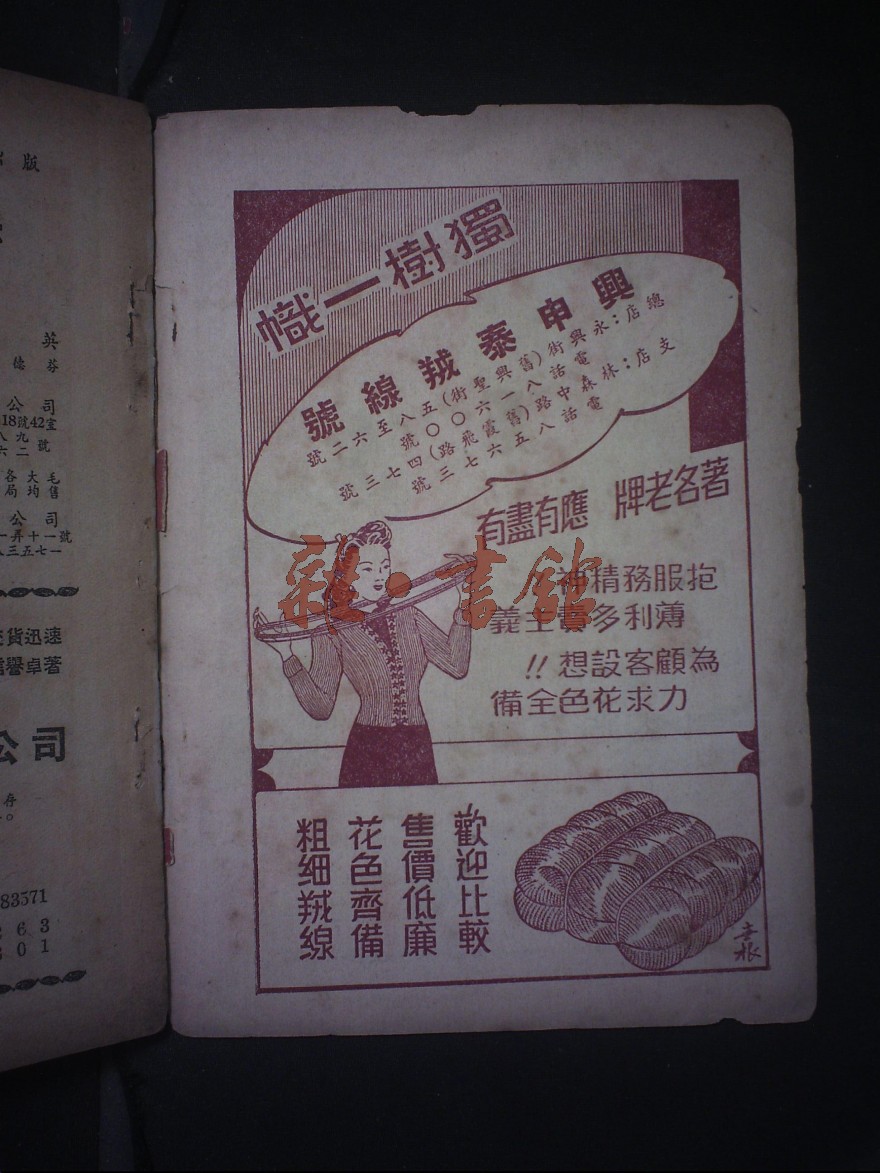 獨樹一幟
興申泰羢線號
總店：永興街(舊興聖街)五八至六二號
電話八一六〇〇號
支店：林森中路(舊霞飛路)四七三號
電話八五六七三號
著名老牌 應有盡有
抱服務精神
薄利多賣主義
為顧客設想!!
力求花色全備
歡迎比較
售價低廉
花色齊備
粗細羢線
雜·書館
版
英
芬
公司
18號42室
毛大各
售均局
公司
貨迅速
譽卓著
公司
存
83571
263
301